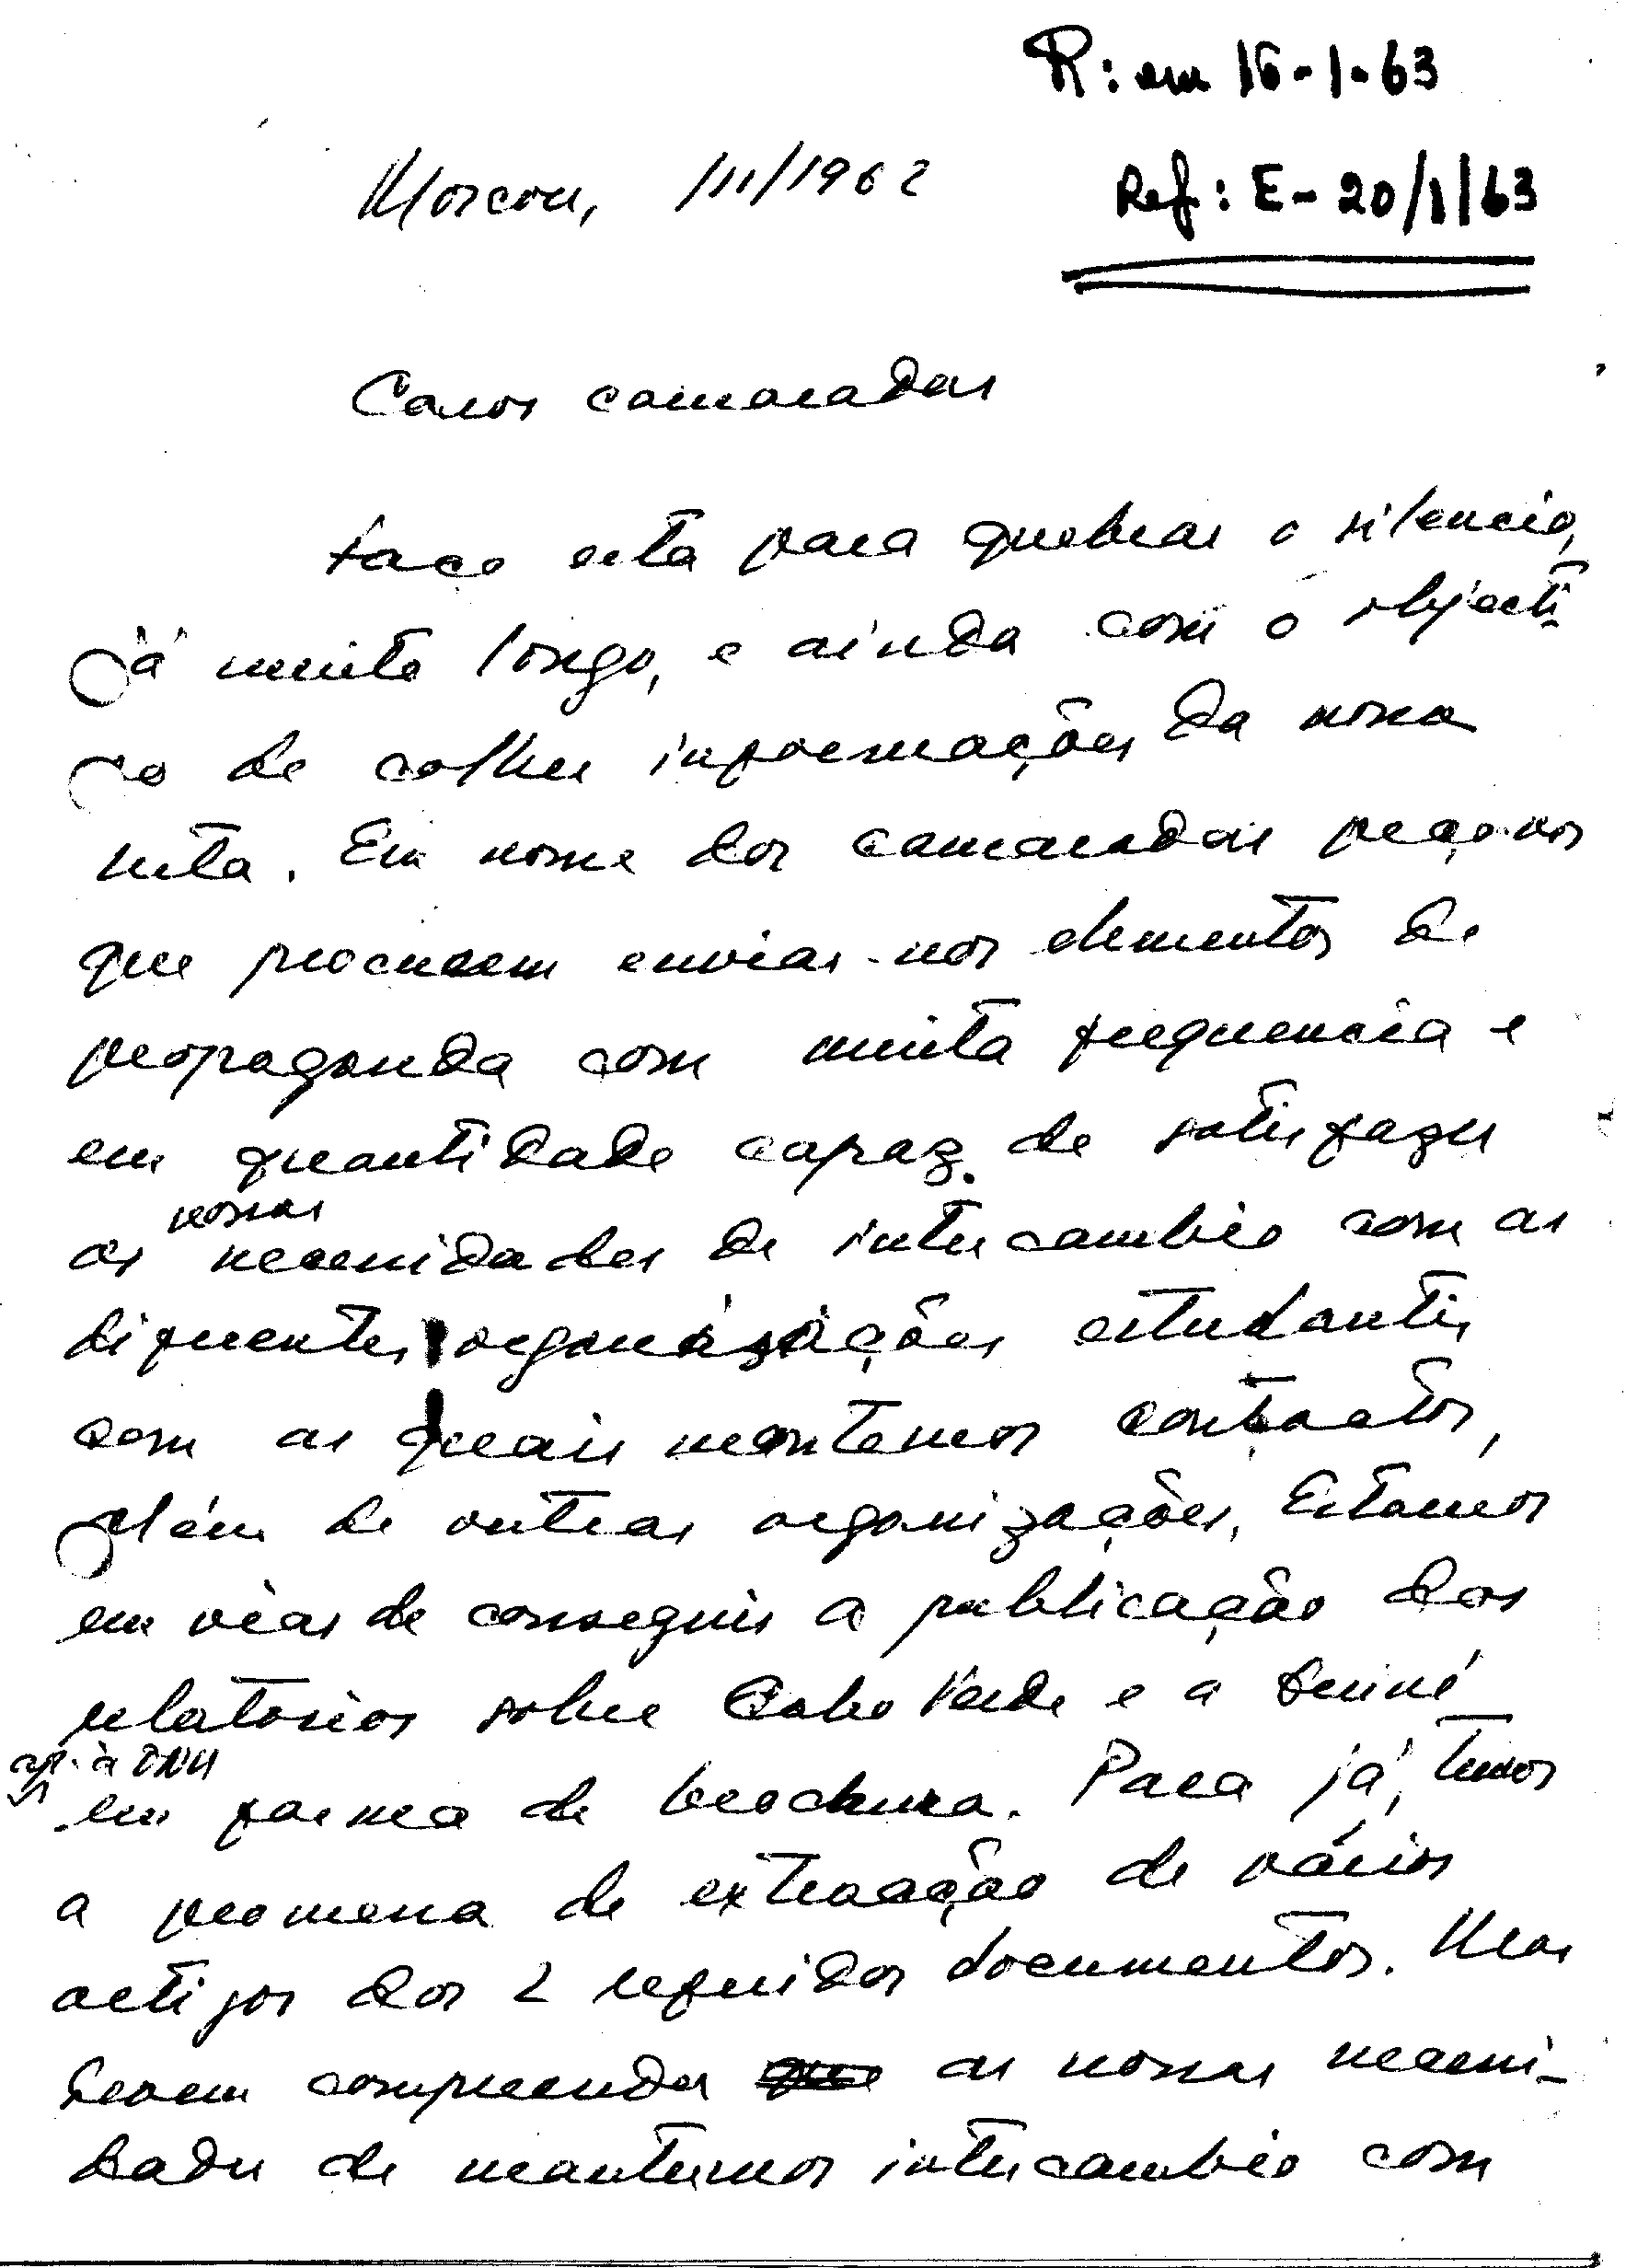 R: em 16-1-63
Moscou, /III/1962
Ref: E-20/1/63
Caros camaradas
Faço esta para quebrar o silencio,
já muito longo, e ainda com o objecti-
vo de colher informações da nossa
luta. Em nome dos camaradas peço-vos
que procurem enviar-nos elementos de
propaganda com muita frequencia e
em quantidade capaz de satisfazer
nossas
as necessidades de intercambio com as
diferentes organizações estudantis
com as quais mantemos contactos,
além de outras organizações. Estamos
em vias de conseguir a publicação dos
relatorios sobre Cabo Verde e a Guiné
à ONU
em forma de brochura. Para já, temos
a promessa de extracção de vários
artigos dos 2 referidos documentos. Mas
devem compreender que as nossas necessi-
dades de mantermos intercambio com